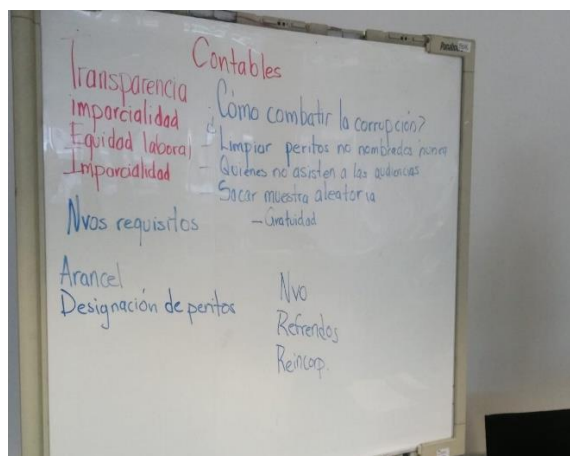 Contables
Transparencia
imparcialidad
Equidad laboral
Imparcialidad
¿Cómo combatir la corrupción?
- Limpiar peritos no nombrados nunca
- Quienes no asisten a las audiencias
Sacar muestra aleatoria
- Gratuidad
Nvos requisitos
Arancel
Designación de peritos
Nvo
Refrendos
Reincorp.